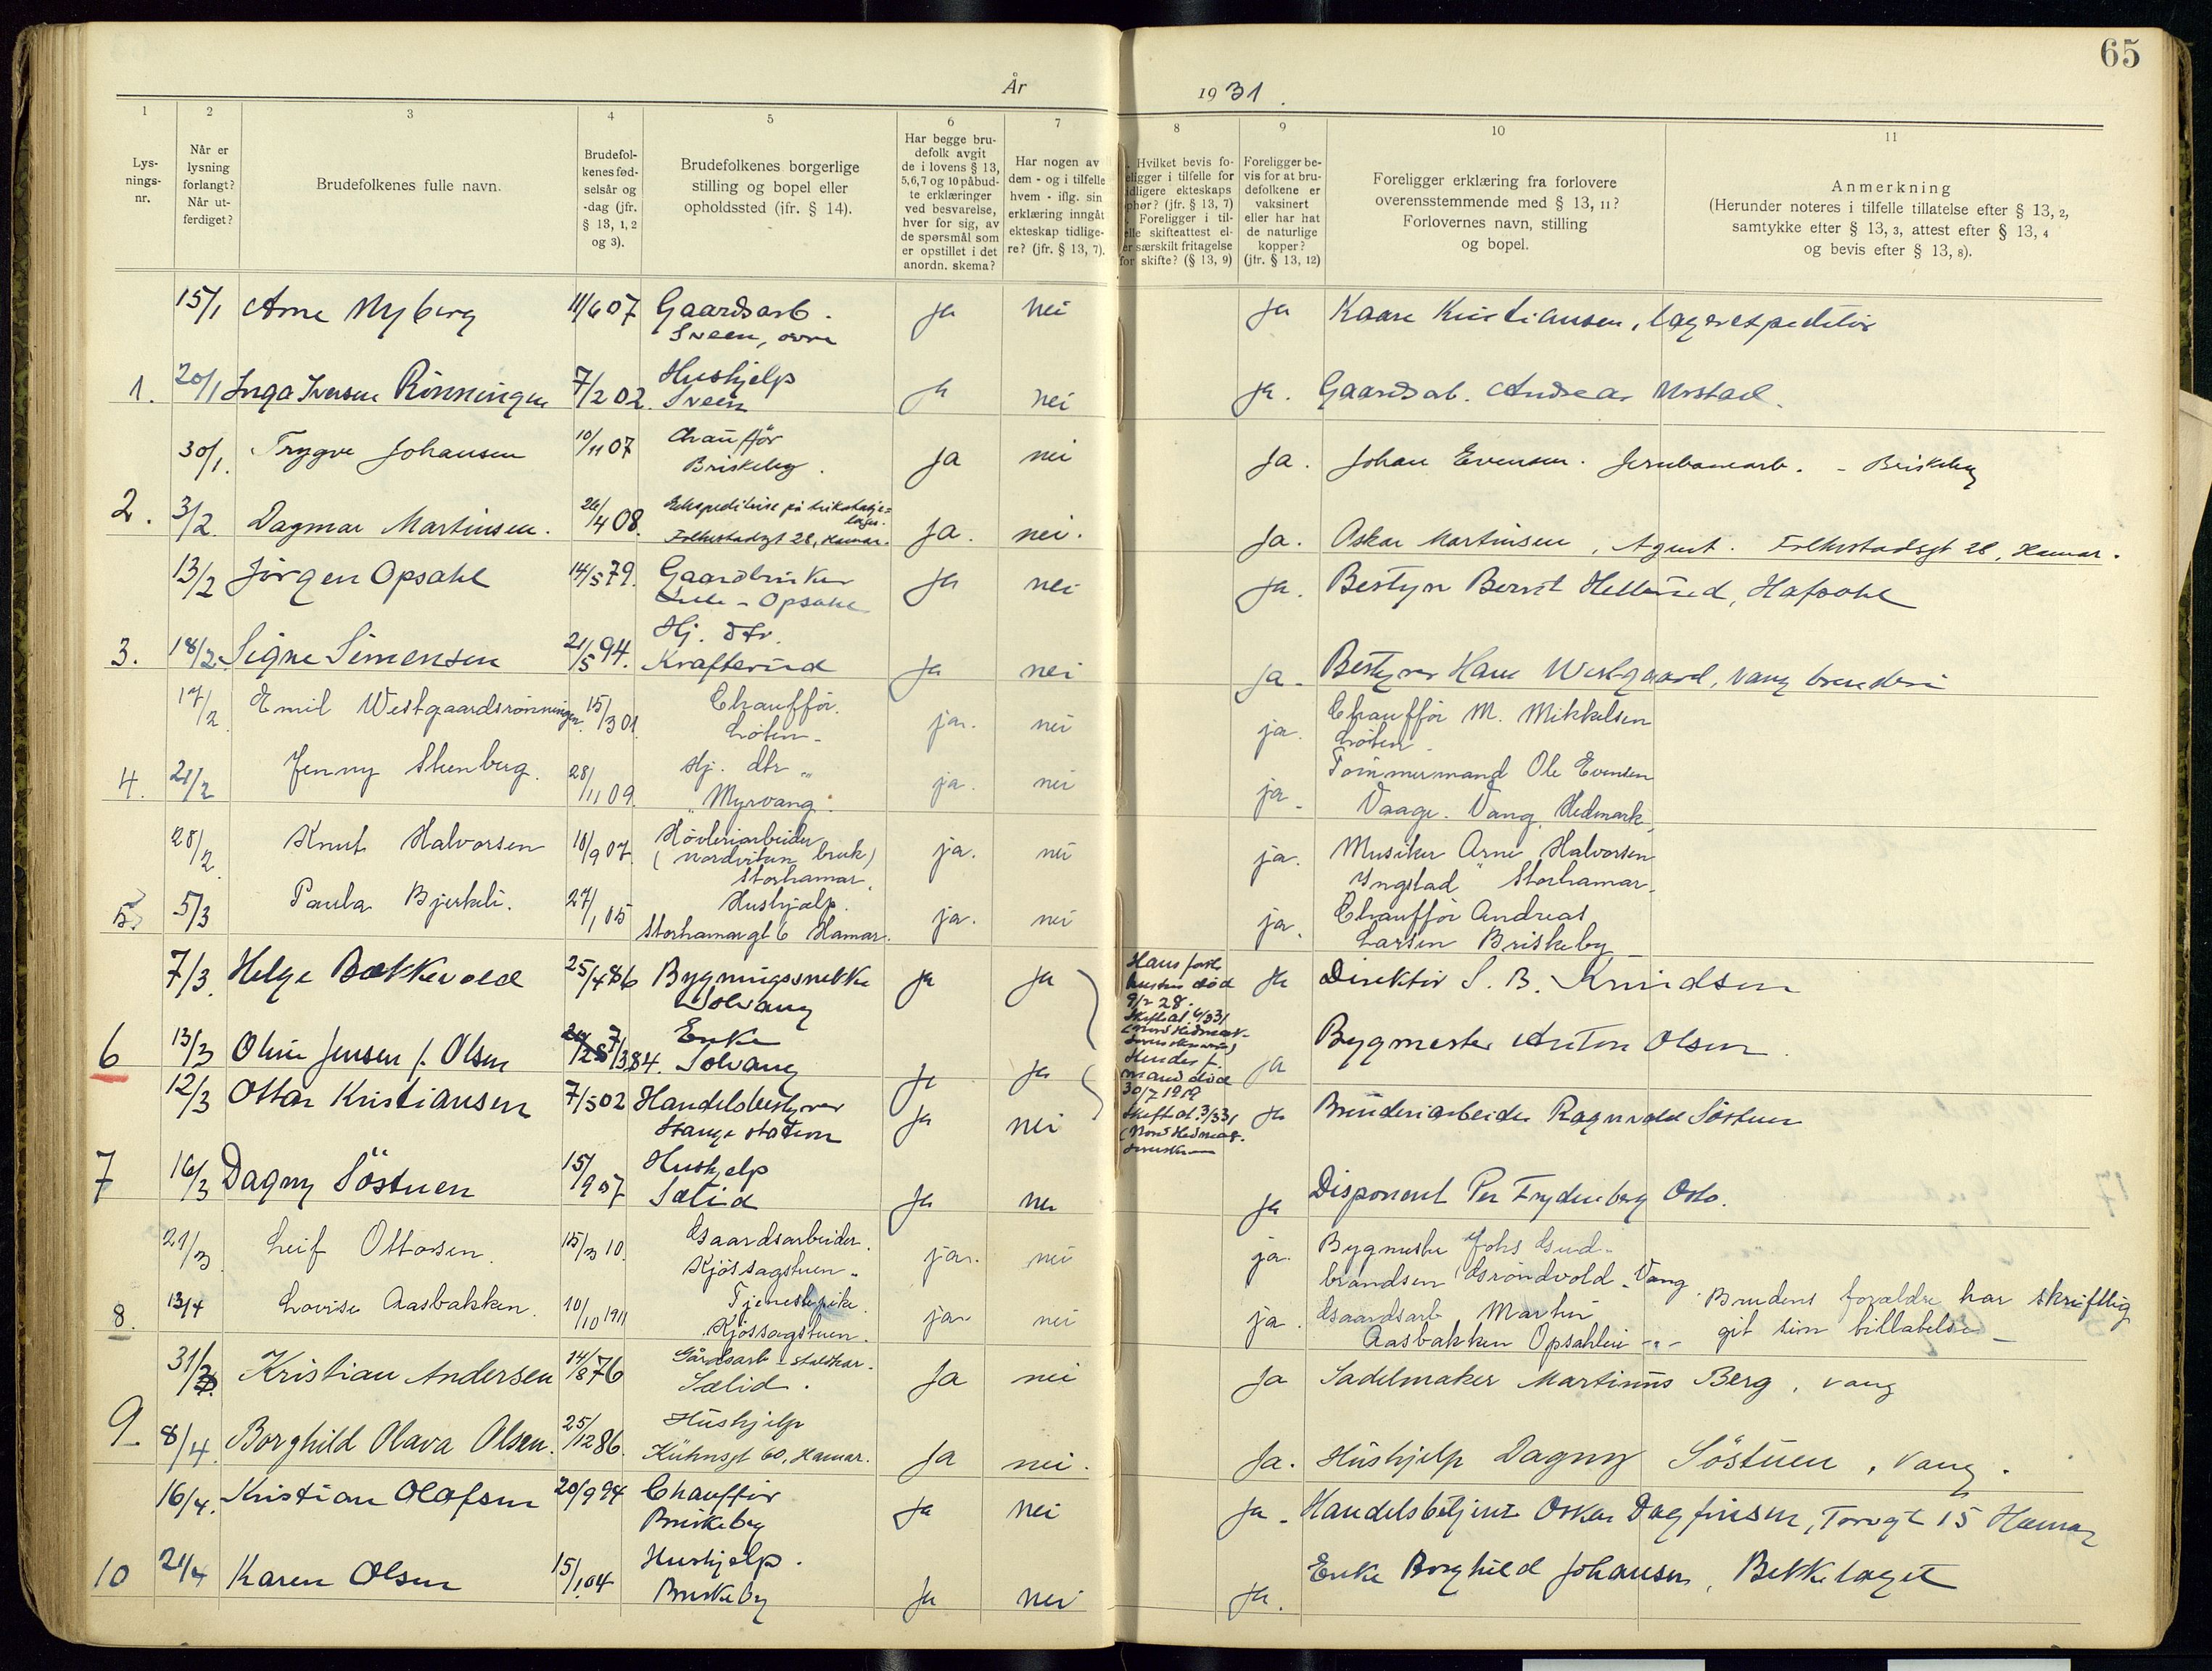 65
År 1931.
1
2
3
4
5
6
7
8
9
10
11
Lys-
nings-
nr.
Når er
lysning
forlangt?
Når ut-
ferdiget?
Brudefolkenes fulle navn.
Brudefol-
kenes fød-
selsår og
-dag (jfr.
§ 13, 1, 2
og 3).
Brudefolkenes borgerlige
stilling og bopel eller
opholdssted (ifr. § 14).
Har begge bru-
defolk avgit
de i lovens § 13,
5,6,7 og 10 påbud-
te erklæringer
ved besvarelse,
hver for sig, av
de spørsmål som
er opstillet i det
anordn. skema?
Har nogen av
dem - og i tilfelle
hvem - iflg. sin
erklæring inngåt
ekteskap tidlige-
re? (jfr. § 13, 7).
Hvilket bevis fo-
eligger i tilfelle for
idligere ekteskaps
phør? (jfr. § 13, 7)
Foreligger i til-
elle skifteattest el-
er særskilt fritagelse
for skifte? (§ 13, 9)
Foreligger be-
vis for at bru-
defolkene er
vaksinert
eller har hat
de naturlige
kopper?
(jfr. § 13, 12)
Foreligger erklæring fra forlovere
overensstemmende med § 13, 11?
Forlovernes navn, stilling
og bopel.
Anmerkning
(Herunder noteres i tilfelle tillatelse efter § 13, 2,
samtykke efter § 13, 3, attest efter § 13, 4
og bevis efter § 13, 8).
15/1 Arne Nyberg 11/6 07 Gaardsarb. ja nei ja Kaare Kristiansen, lagerexpeditør
Sveen, øvre
1. 20/1 Inga Iversen Rönningen 7/2 02. Hushjelp ja nei ja. Gaardsarb. Andreas Urstad.
Sveen
30/1. Trygve Johansen 10/11 07 Chaufför ja nei ja. Johan Evensen. Jernbanearb. - Briskeby
Briskeby.
2. 3/2. Dagmar Martinsen. 26/4 08. Ekspeditrise på trikotasje=
lager. ja. nei. ja. Oskar Martinsen, Agent. Folkestadsgt 28, Hamar.
Folkestadsgt 28, Hamar.
13/2 Jörgen Opsahl 14/5 79. Gaardbruker ja nei ja. Bestyrer Bernt Hellerud, Hafsahl
Lille-Opsahl
3. 18/2 Signe Simensen 21/5 94. Hj. dtr. ja nei ja. Bestyrer Hans Westgaard, Vang brenderi
Krafterud
17/2 Emil Westgaardsrönningen. 15/3 01. Chaufför. ja. nei ja. Chaufför M. Mikkelsen
Löten. Löten.
4. 21/2 Jenny Stenberg. 28/11 09. Hj. dtr. ja. nei ja. Tömmermand Ole Evensen
Myrvang. Vaage. Vang, Hedmark.
28/2. Knut Halvorsen 18/9 07. Hövleriarbeider ja. nei ja. Musiker Arne Halvorsen
(Nordvikan bruk)
Storhamar. Yngstad Storhamar.
5. 5/3 Paula Bjerkeli. 27/1 05 Hushjælp. ja. nei ja. Chaufför Andreas
Storhamargt 6 Hamar. Larsen Briskeby
7/3. Helge Bækkevold 25/4 86 Bygningssnekker ja ja ja Direktör S. B. Knudsen
Solvang
Hans forh.
hustru död
9/2 28.
6 13/3 Oline Jensen f. Olsen 7/3 84. Enke ja ja ja Bygmester Anton Olsen.
Solvang
Hendes f.
mand död
30/7 1919
12/3 Ottar Kristiansen 7/5 02 Handelsbestyrer ja nei ja Brenderiarbeider Ragnvald Söstuen
Stange station
7 16/3 Dagny Söstuen 15/9 07 Hushjelp ja nei ja Disponent Per Frydenberg Oslo.
Sælid
21/3 Leif Ottosen. 15/3 10. Gaardsarbeider. ja. nei ja. Bygmester Johs Gud-
Kjössagstuen. brandsen Gröndvold - Vang
8. 13/4 Lovise Aasbakken. 10/10 1911 Tjenestepike. ja. nei ja. Gaardsarb. Martin Brudens forældre har skriftlig
Kjössagstuen. Aasbakken Opsahleie git sin tillatelse
31/3 Kristian Andersen 14/8 76 Gårdsarb - staldkar. ja nei ja Sadelmaker Martinus Berg, Vang
Sælid.
9 8/4. Borghild Olava Olsen. 25/12 86. Hushjelp ja nei. ja. Hushjelp Dagny Söstuen, Vang.
Kühnsgt 60, Hamar.
16/4. Kristian Olafsen 20/9 94 Chaufför ja nei ja. Handelsbetjent Oskar Dagfinsen, Torvgt 15 Hamar
Briskeby
10 21/4 Karen Olsen 15/1 04 Hushjelp. ja nei ja. Enke Borghild Johansen, Bekkelaget
Briskeby